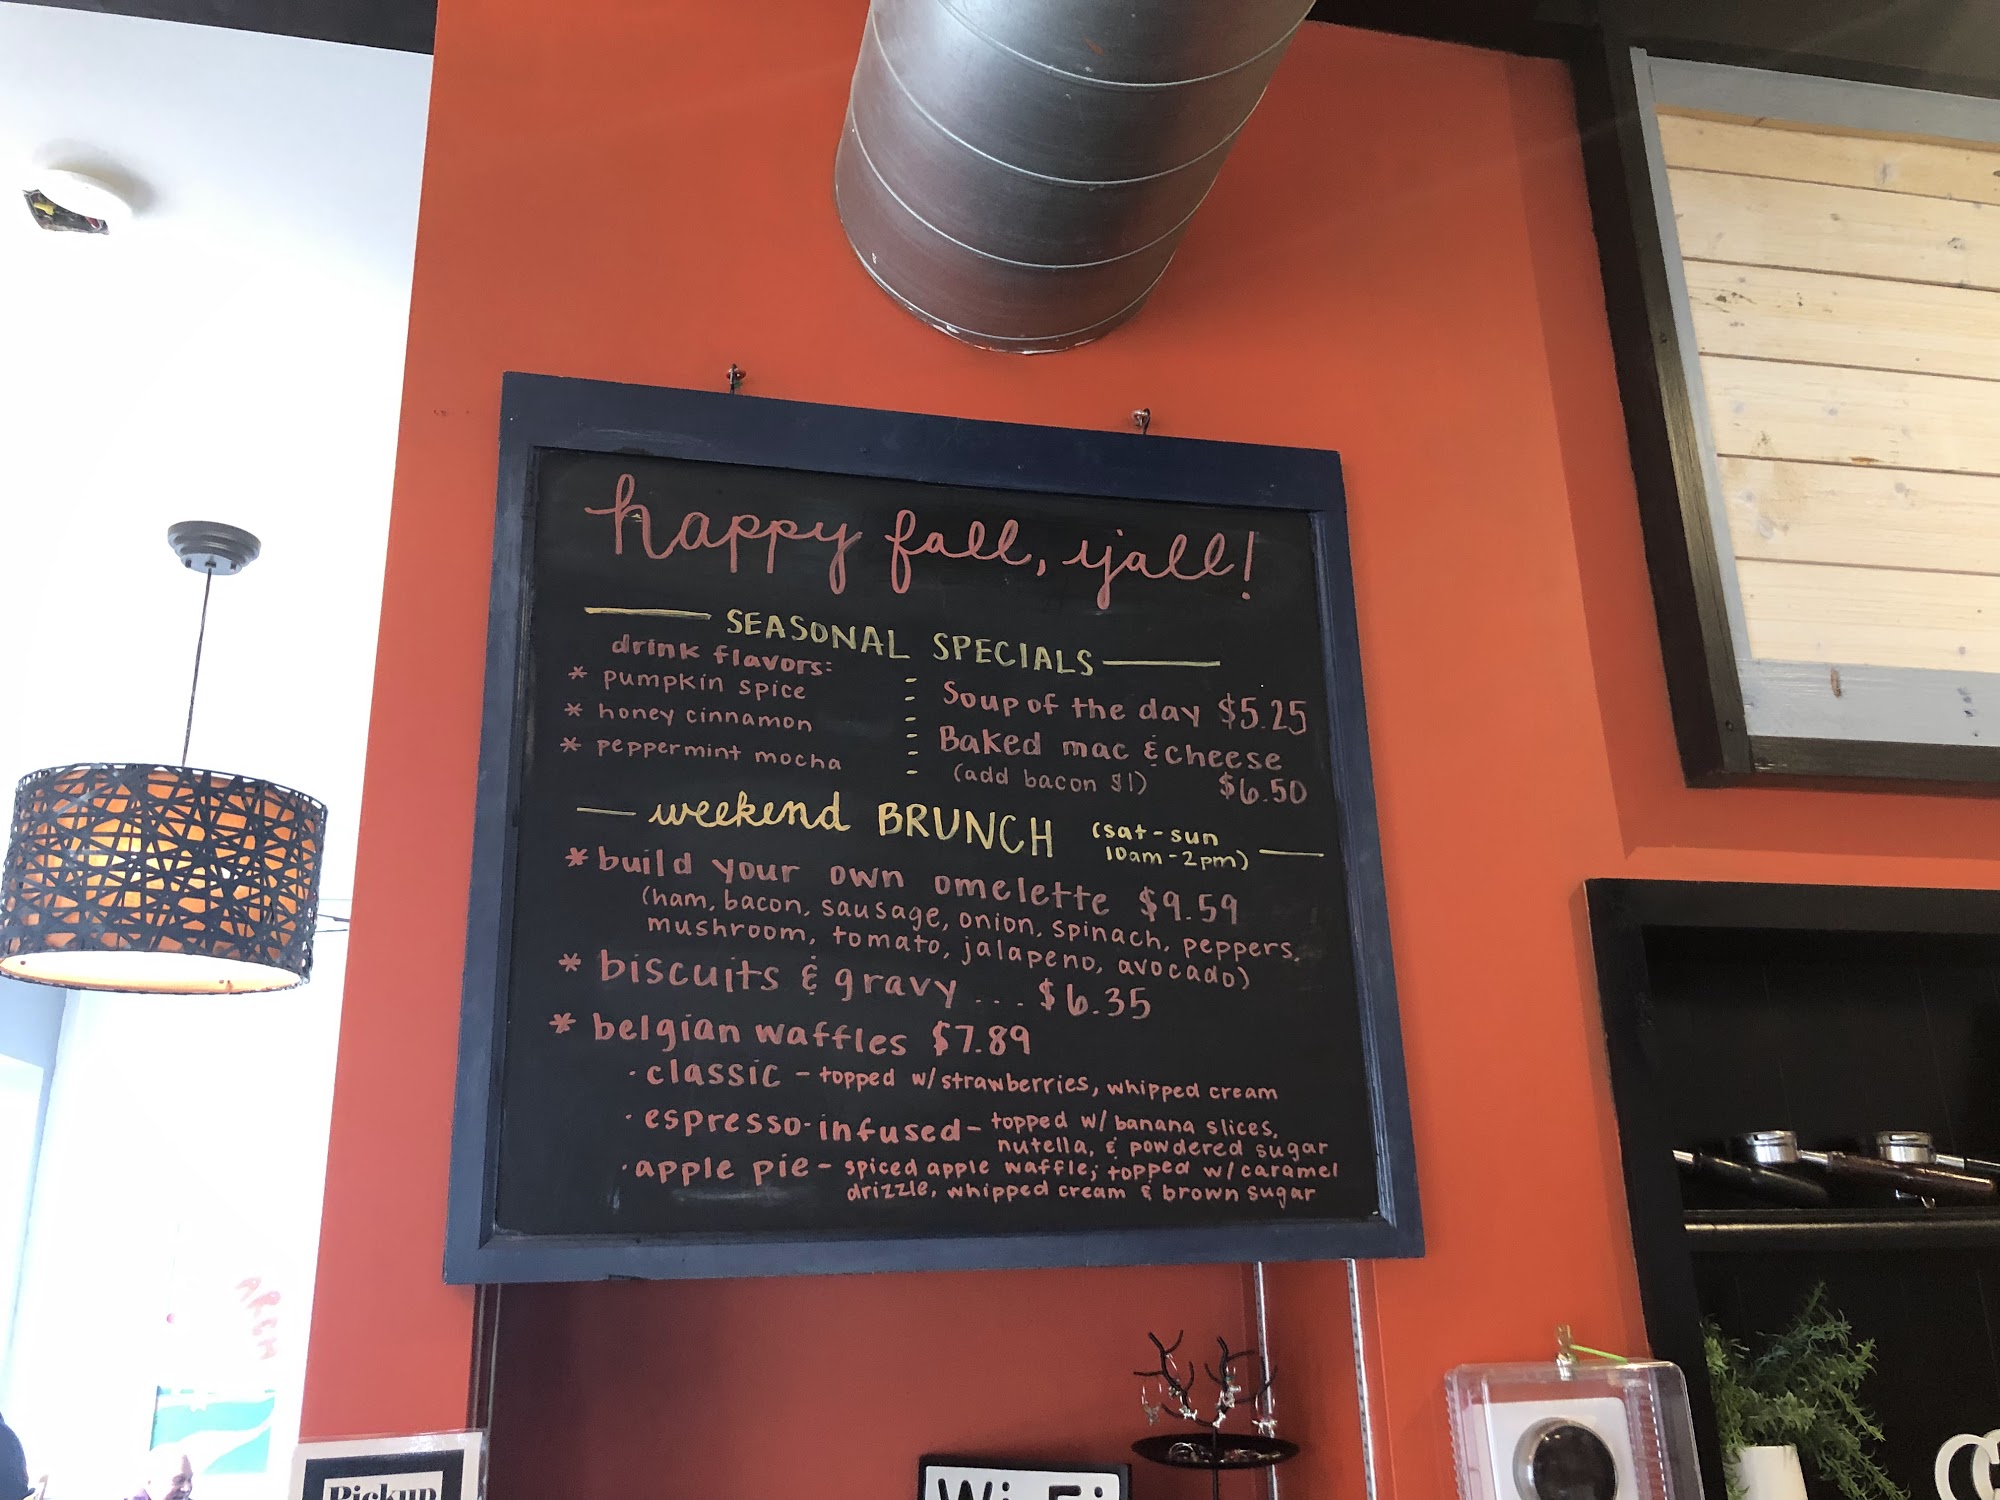 happy fall, y'all!
SEASONAL SPECIALS
drink flavors:
* pumpkin spice
* honey cinnamon
* peppermint mocha
Soup of the day $5.25
Baked mac & cheese
(add bacon $1) $6.50
weekend BRUNCH (sat-sun
10am-2pm)
* build your own omelette $9.59
(ham, bacon, sausage, onion, spinach, peppers,
mushroom, tomato, jalapeno, avocado)
* biscuits & gravy ... $6.35
* belgian waffles $7.89
· classic - topped w/ strawberries, whipped cream
· espresso-infused - topped w/ banana slices,
nutella, & powdered sugar
· apple pie - spiced apple waffle; topped w/ caramel
drizzle, whipped cream & brown sugar
Pickup
Wi-Fi